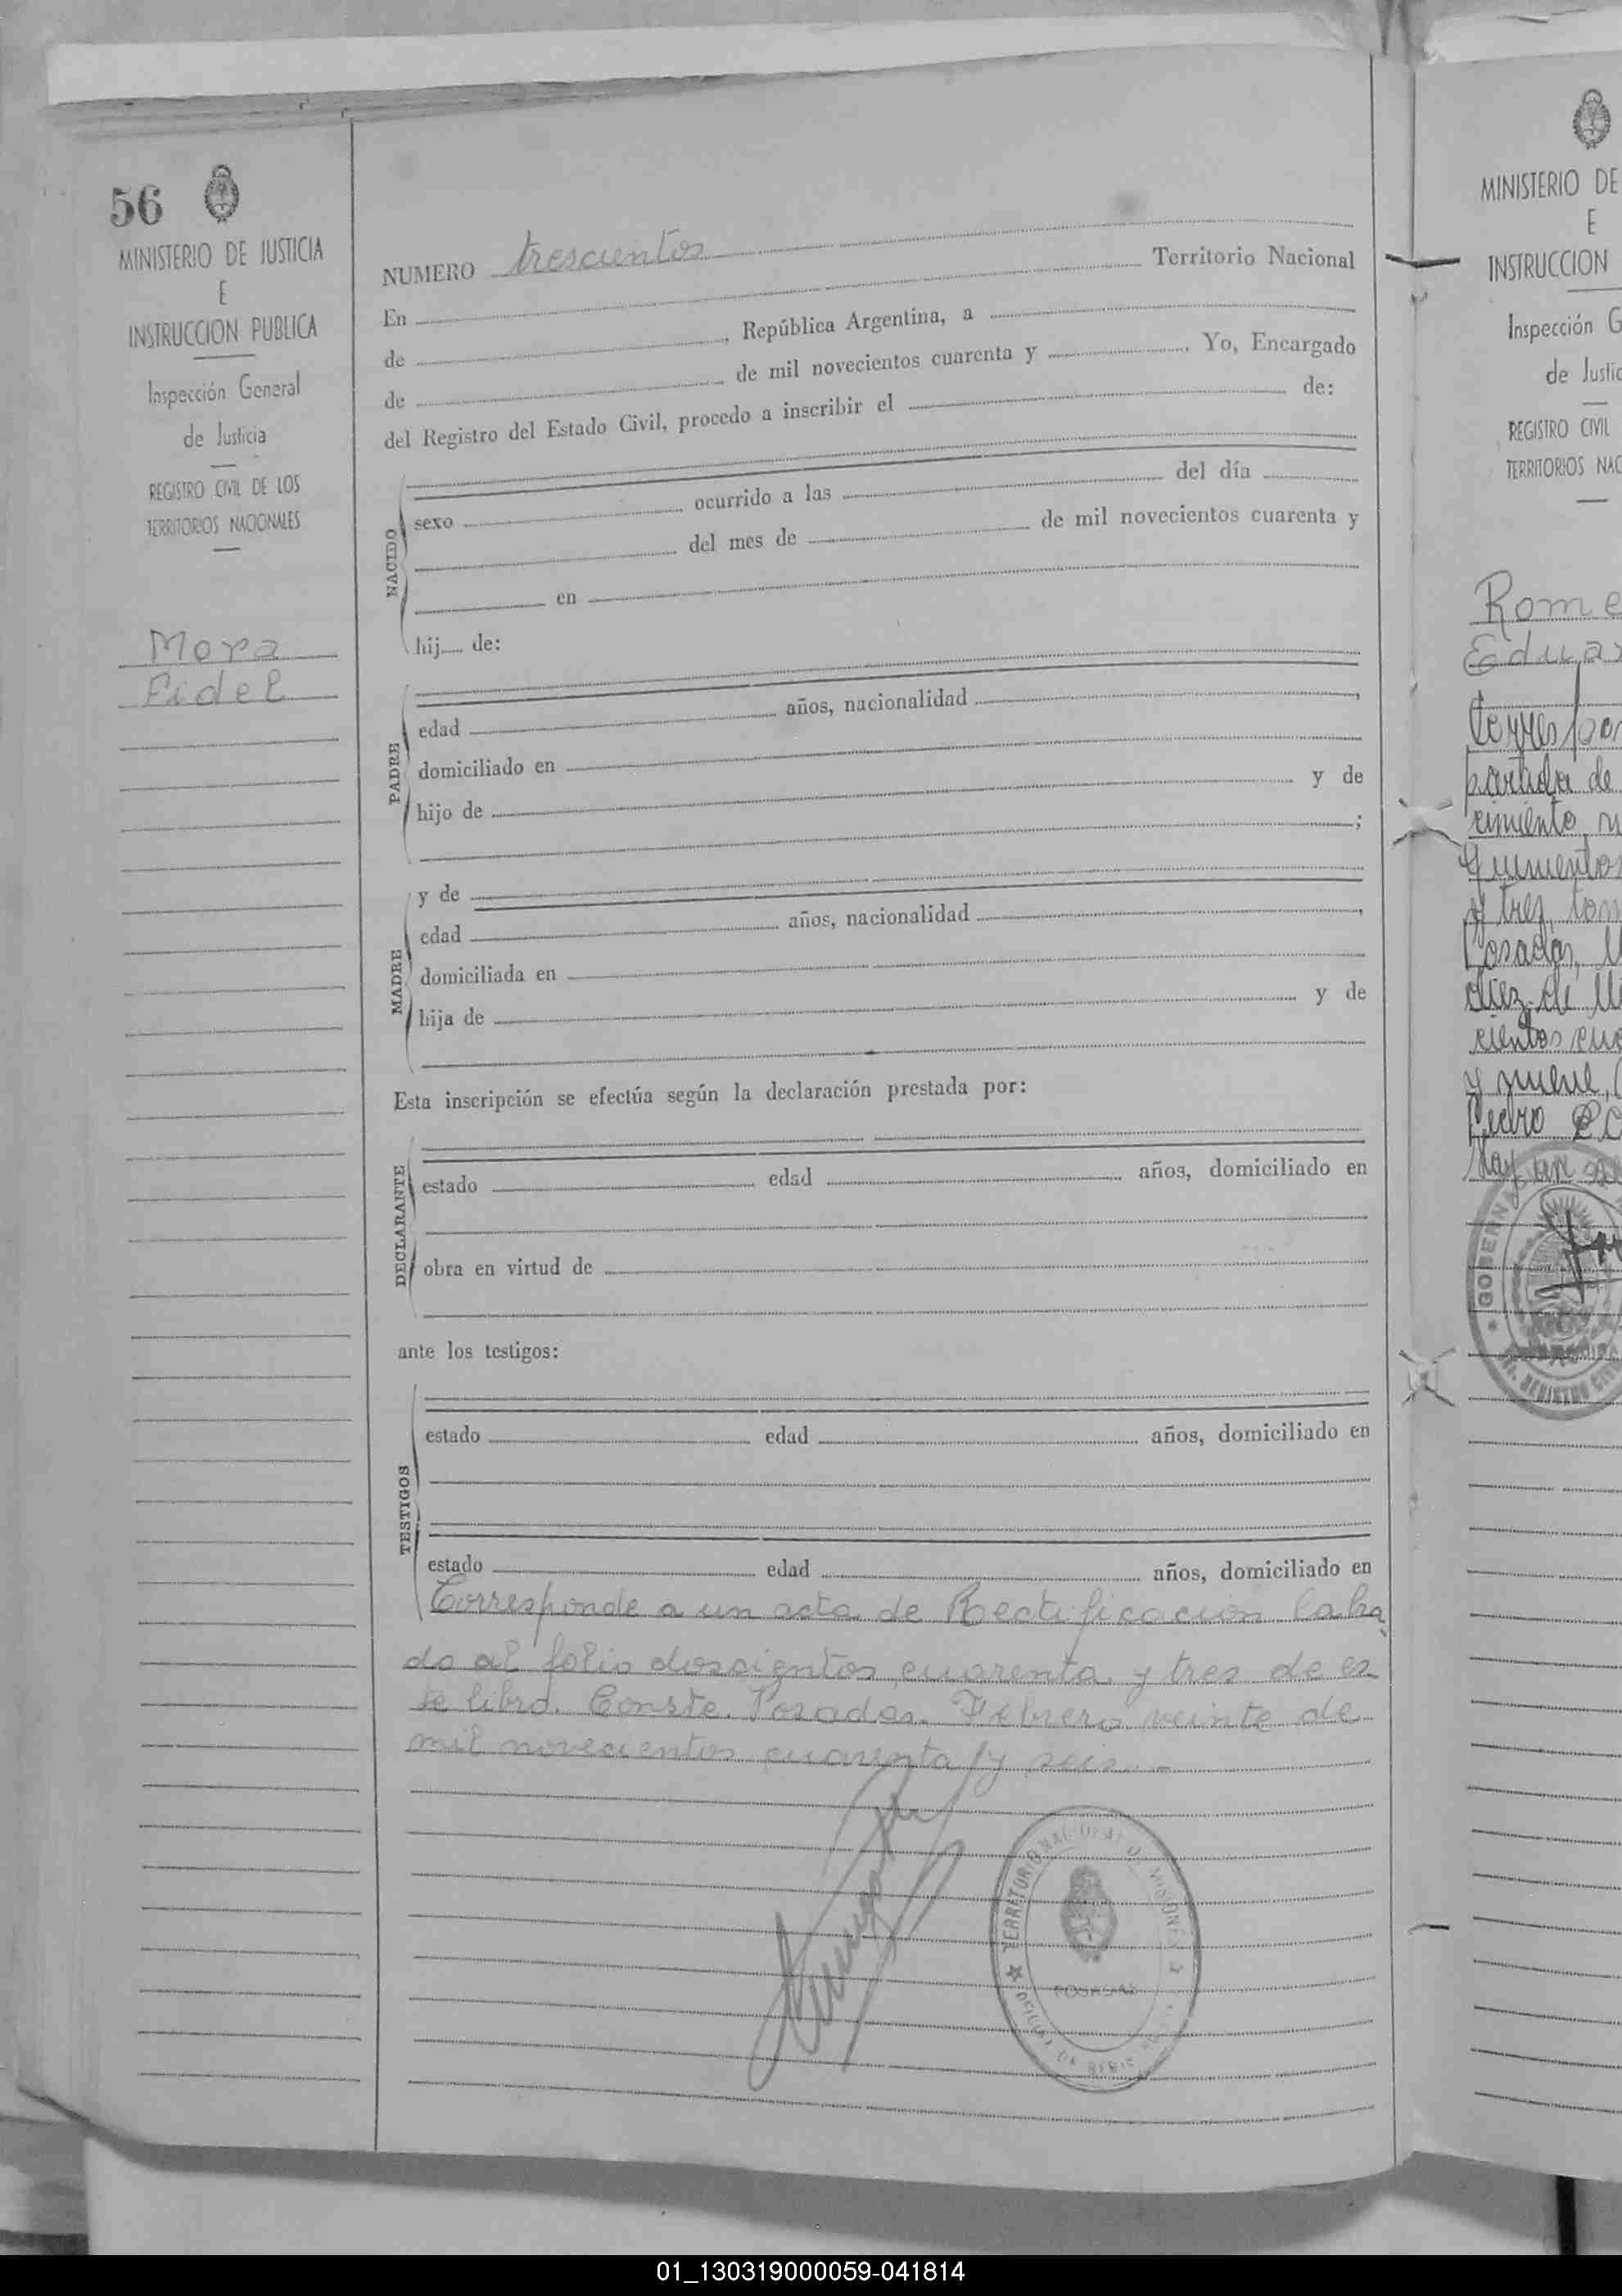 56
MINISTERIO DE JUSTICIA
E
INSTRUCCION PUBLICA
Inspección General
de Justicia
REGISTRO CIVIL DE LOS
TERRITORIOS NACIONALES
Mora
Fidel
NUMERO trescientos
En Territorio Nacional
de , República Argentina, a
de de mil novecientos cuarenta y . Yo, Encargado
del Registro del Estado Civil, procedo a inscribir el de:
NACIDO
sexo ocurrido a las del día
del mes de de mil novecientos cuarenta y
en
hij de:
PADRE
edad años, nacionalidad ,
domiciliado en
hijo de y de
;
MADRE
y de
edad años, nacionalidad ,
domiciliada en
hija de y de
Esta inscripción se efectúa según la declaración prestada por:
DECLARANTE
estado edad años, domiciliado en
obra en virtud de
ante los testigos:
TESTIGOS
estado edad años, domiciliado en
estado edad años, domiciliado en
Corresponde a un acta de Rectificación labra
do al folio doscientos cuarenta y tres de es
te libro. Conste. Posadas. Febrero veinte de
mil novecientos cuarenta y seis.-
TERRITORIO NACIONAL DE MISIONES
POSADAS
MINISTERIO DE
E
INSTRUCCION
Inspección G
de Justic
REGISTRO CIVIL
TERRITORIOS NAC
Rome
Eduar
Correspon
partida de
cimiento n
y tres, tom
Posadas,
diez de
cientos cua
y nueve,
Pedro
Hay un se
GOBERNA
REGISTRO CIV
01_130319000059-041814